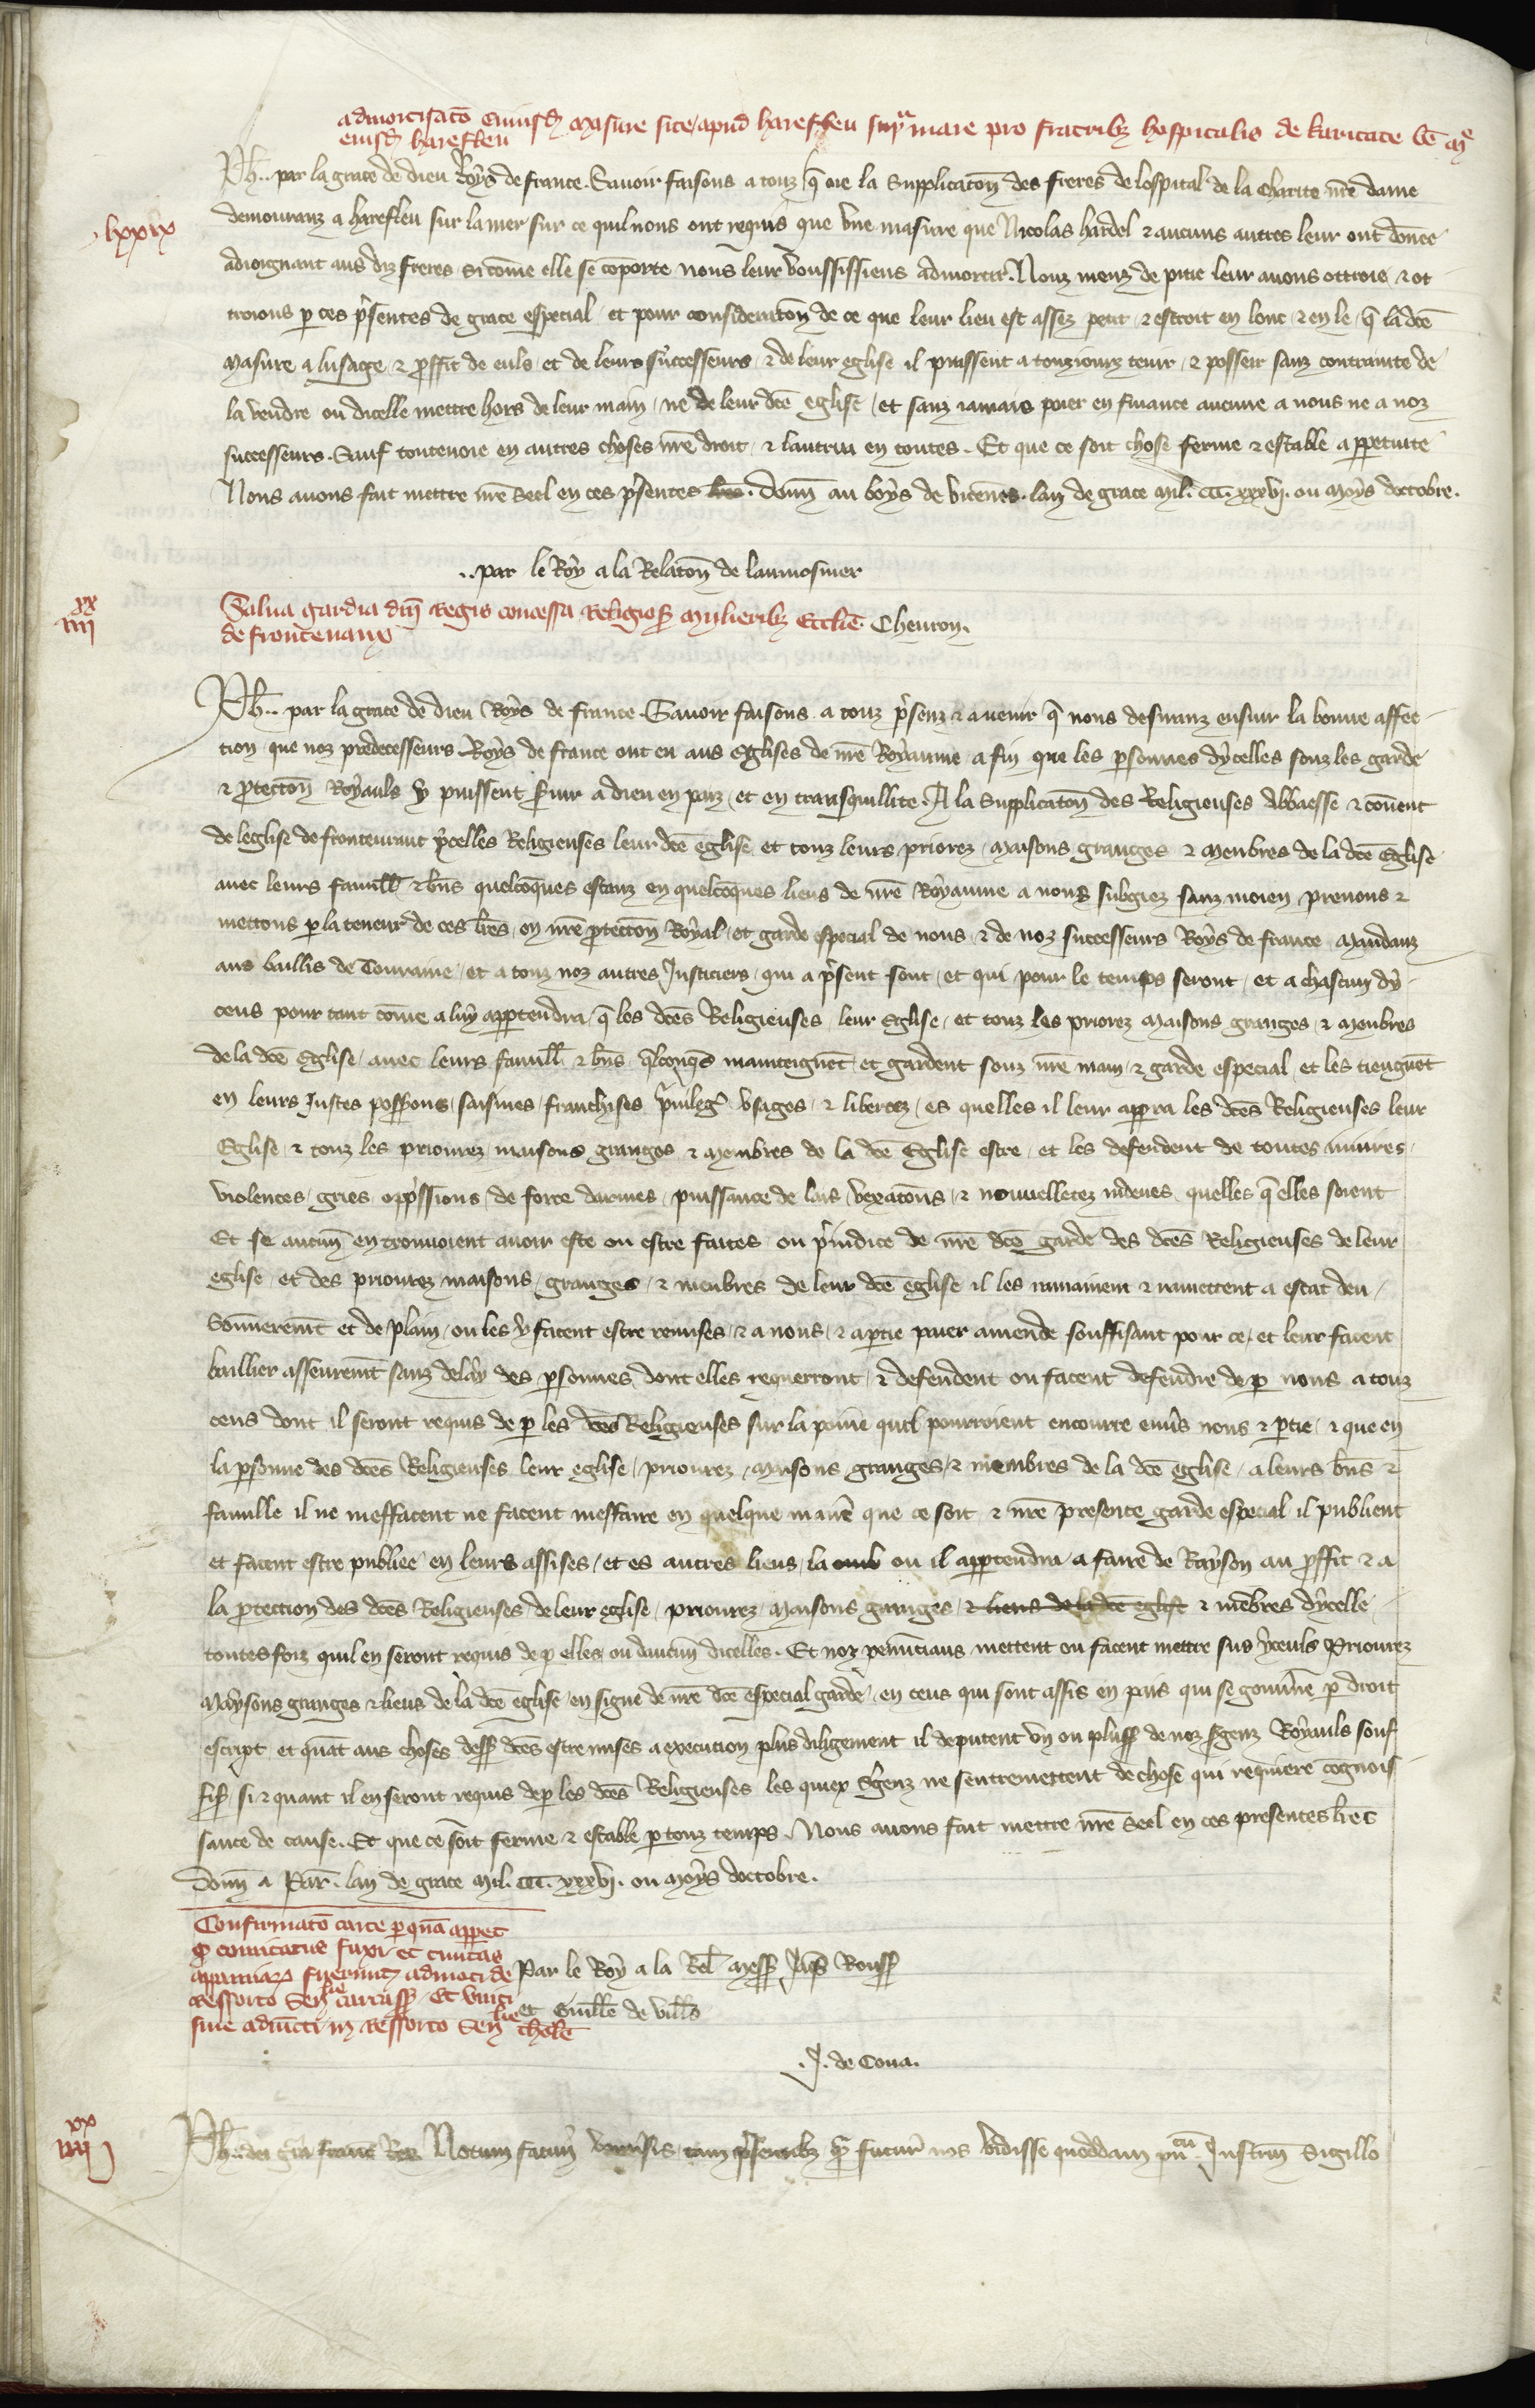 admortisatō cuiusd masure site apud hareffleu supra mare pro fratribz hospitalis de karitate bē mͤ
eiusd hareffleu
Ph.. par la grace de dieu Roys de france. Sauoir faisons a touz q̄ oie la supplicatōn des freres de lospital de la Charite nr̄e dame
lxxix
demouranz a harefleu sur la mer sur ce quil nous ont requis que vne masure que Nicolas hardel ⁊ aucuns autres leur ont donee
adioignant aus diz freres si cōme elle se cōporte nous leur voussissiens admortir. Nous meuz de pitie leur auons ottroie ⁊ ot
troions p ces p̄sentes de grace especial et pour consideratōn de ce que leur lieu est assez petit ⁊ estroit en lonc ⁊ en le q̄ la dcē
Masure a lusage ⁊ proffit de euls et de leurs successeurs ⁊ de leur eglise il puissent a touziours tenir ⁊ posseir sanz contrainte de
la vendre ou dicelle mettre hors de leur main ne de leur dcē eglise et sanz iamais paier en finance aucune a nous ne a noz
successeurs. Sauf toutenoie en autres choses nr̄e droit ⁊ lautrui en toutes. Et que ce soit chose ferme ⁊ estable a ppetuite
Nous auons fait mettre nr̄e seel en ces p̄sentes lr̄es. donn̄ au boys de vicenes. lan de grace Mil. CCC. xxxvj. ou moys doctobre.
.. par le Roy a la Relatōn de laumosnier
xx
iiij
Salua gardia dnī Regis concessa Religios mulieribz Ecclīe
Cheuron.
de fronteuaux
Ph.. par la grace de dieu Roys de france. Sauoir faisons a touz p̄senz ⁊ auenir q̄ nous desiranz ensuir la bonne affec
tion que noz predecesseurs Roys de france ont eu aus Eglises de nr̄e Royaume a fin que les psonnes dycelles souz les garde
⁊ ptectōn Royauls y puissent s̄uir a dieu en paiz et en transquillite. A la supplicatōn des Religieuses Abbaesse ⁊ couent
de leglise de fronteuraut ycelles Religieuses leur dcē eglise et touz leurs priorez maisons granges ⁊ menbres de la dcē Eglise
auec leurs famill ⁊ bn̄s quelcoq̄ues estanz en quelcoq̄ues lieus de nr̄e Royaume a nous subgiez sanz moien prenons ⁊
mettons p la teneur de ces lr̄es en nr̄e ptectōn Royal et garde especial de nous ⁊ de noz successeurs Roys de france Mandanz
aus baillis de Touraine et a touz noz autres Justiciers qui a p̄sent sont et qui pour le temps seront et a chascun dy
ceus pour tant cōme a luy apptendra q̄ les dcēs Religieuses leur Eglise et touz les priorez Maisons granges ⁊ menbres
de la dcē Eglise auec leurs famill ⁊ bn̄s qlconq̄s mainteignēt et gardent souz nr̄e main ⁊ garde especial et les tiengnēt
en leurs Justes possons saisines franchises priuileg vsages ⁊ libertez es quelles il leur apprra les dcēs Religieuses leur
Eglise ⁊ touz les priourez maisons granges ⁊ Menbres de la dcē Eglise estre et les defendent de toutes iniures
violences gries opp̄ssions de force darmes puissance de lais vexatōns ⁊ nouuelletez indeues quelles q̄ elles soient
Et se aucun en trouuoient auoir este ou estre faites ou p̄iudice de nr̄e dcē garde des dcēs Religieuses de leur
eglise et des priourez maisons granges ⁊ menbres de leur dcē eglise il les ramainent ⁊ ramettent a estat deu
Sommerem̄t et de plain ou les y facent estre remises ⁊ a nous ⁊ a ptie paier amende souffisant pour ce et leur facent
baillier asseurem̄t sanz delay des psonnes dont elles requerront ⁊ defendent ou facent defendre de p nous a touz
ceus dont il seront requis de p les dcēs Religieuses sur la poine quil pourroient encourre enuers nous ⁊ ptie ⁊ que en
la psonne des dcēs Religieuses leur eglise priourez Maisons granges ⁊ menbres de la dcē eglise a leurs bn̄s ⁊
famille il ne meffacent ne facent meffaire en quelque manē que ce soit ⁊ nr̄e presente garde especial il publient
et facent estre publiee en leurs assises et es autres lieus la ou il apptendra a faire de Rayson au proffit ⁊ a
la ptection des dcēs Religieuses de leur eglise priourez Maisons granges ⁊ lieus de la dcē eglise ⁊ mēbres dycelle
toutesfoiz quil en seront requis de p elles ou daucun dicelles. Et noz penuncians mettent ou facent mettre sus yceuls Priourez
Maysons granges ⁊ lieus de la dcē eglise en signe de nr̄e dcē especial garde en ceus qui sont assis en pais qui se gouu̇ne p droit
escript et quāt aus choses dess dcēs estre mises a execution plus diligement il deputent vn ou pluss de noz sgenz Royauls souf
fis si ⁊ quant il en seront requis de p les dcēs Religieuses les quiex sgenz ne sentremettent de chose qui requiere cognois
sance de cause. Et que ce soit ferme ⁊ estable p touz temps. Nous auons fait mettre nr̄e seel en ces presentes lr̄es
donn̄ a Par. lan de grace Mil. CCC. xxxvj. ou moys doctobre.
Confirmatō carte p quā appet
q comitatus fuxi et ciuitas
appamiaꝝ fuerunt admoti de
ressorto Senlie carcass et vnici
siue adiūcti in ressorto Senlie tholē
Par le Roy a la Rel mess Jaqs Rouss
et Guille de vills
.J. de Coua.
xx
iiij
j
Ph. dei grā franc Rex Notum facim̄ vniuersis tam p̄sentibz q̄ futur nos vidisse quoddam pucū Instrm̄ Sigillo